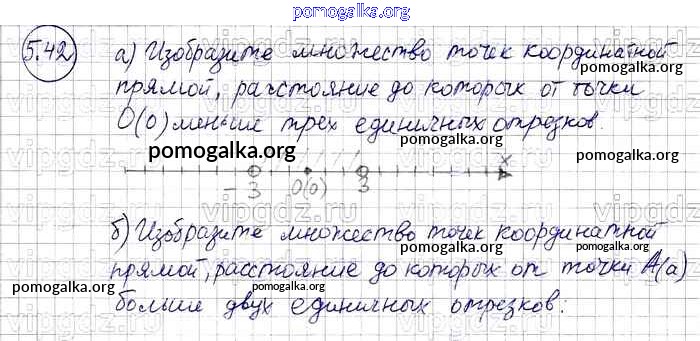 pomogalka.org
5.42 а) Изобразите множество точек координатной
pomogalka.org
прямой, расстояние до которых от точки
О(0) меньше трех единичных отрезков.
pomogalka.org
pomogalka.org
x
-3 О(0) 3
б) Изобразите множество точек координатной
pomogalka.org
прямой, расстояние до которых от точки А(а)
pomogalka.org
больше двух единичных отрезков:
pomogalka.org